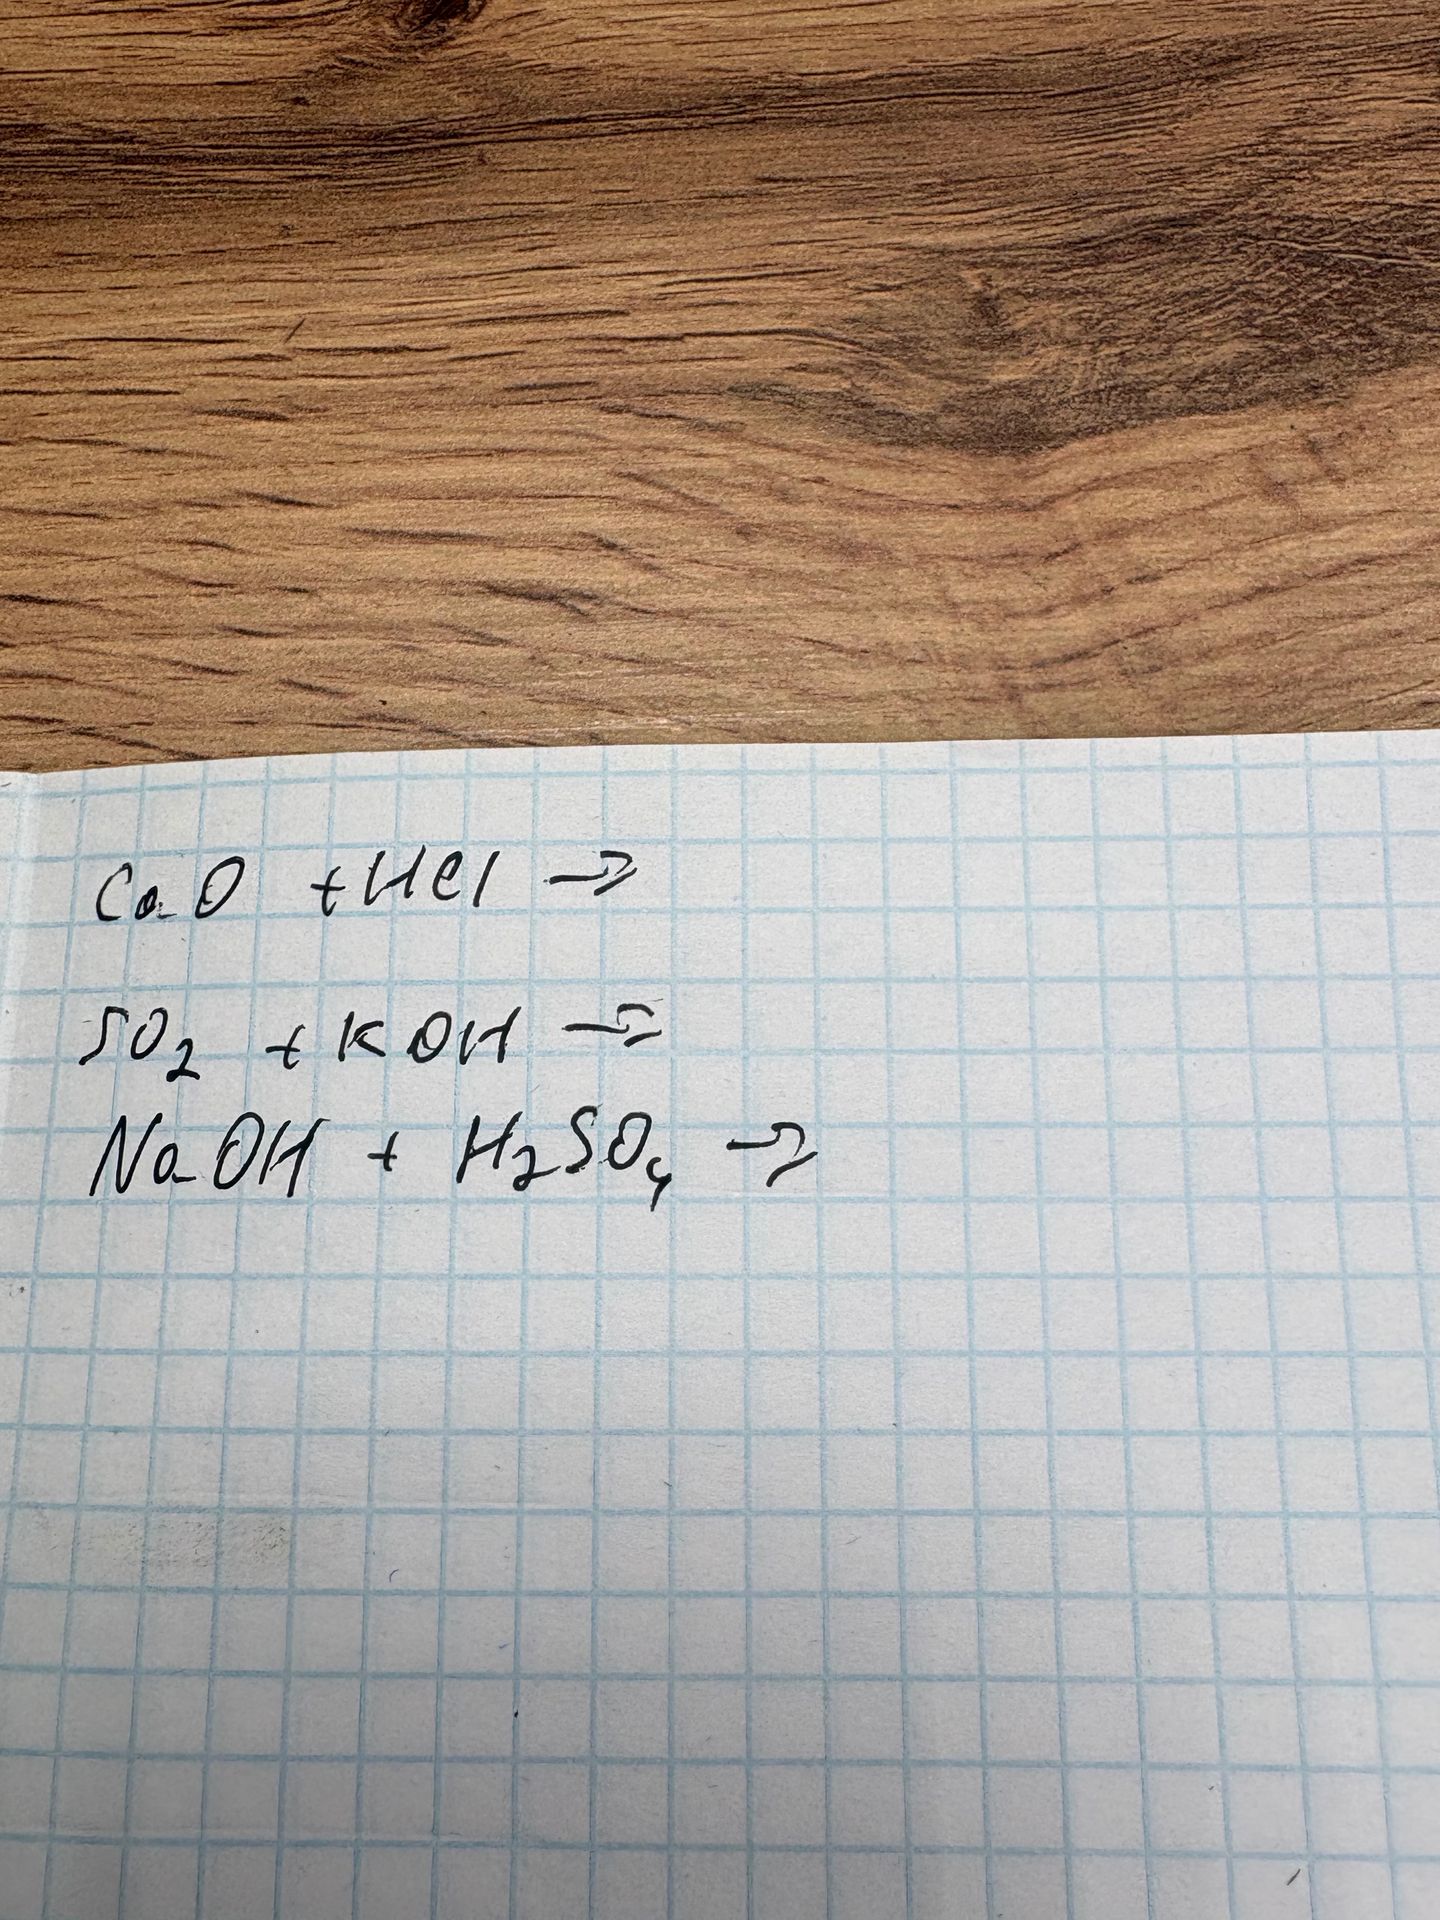 CaO + HCl →
SO₂ + KOH →
NaOH + H₂SO₄ →